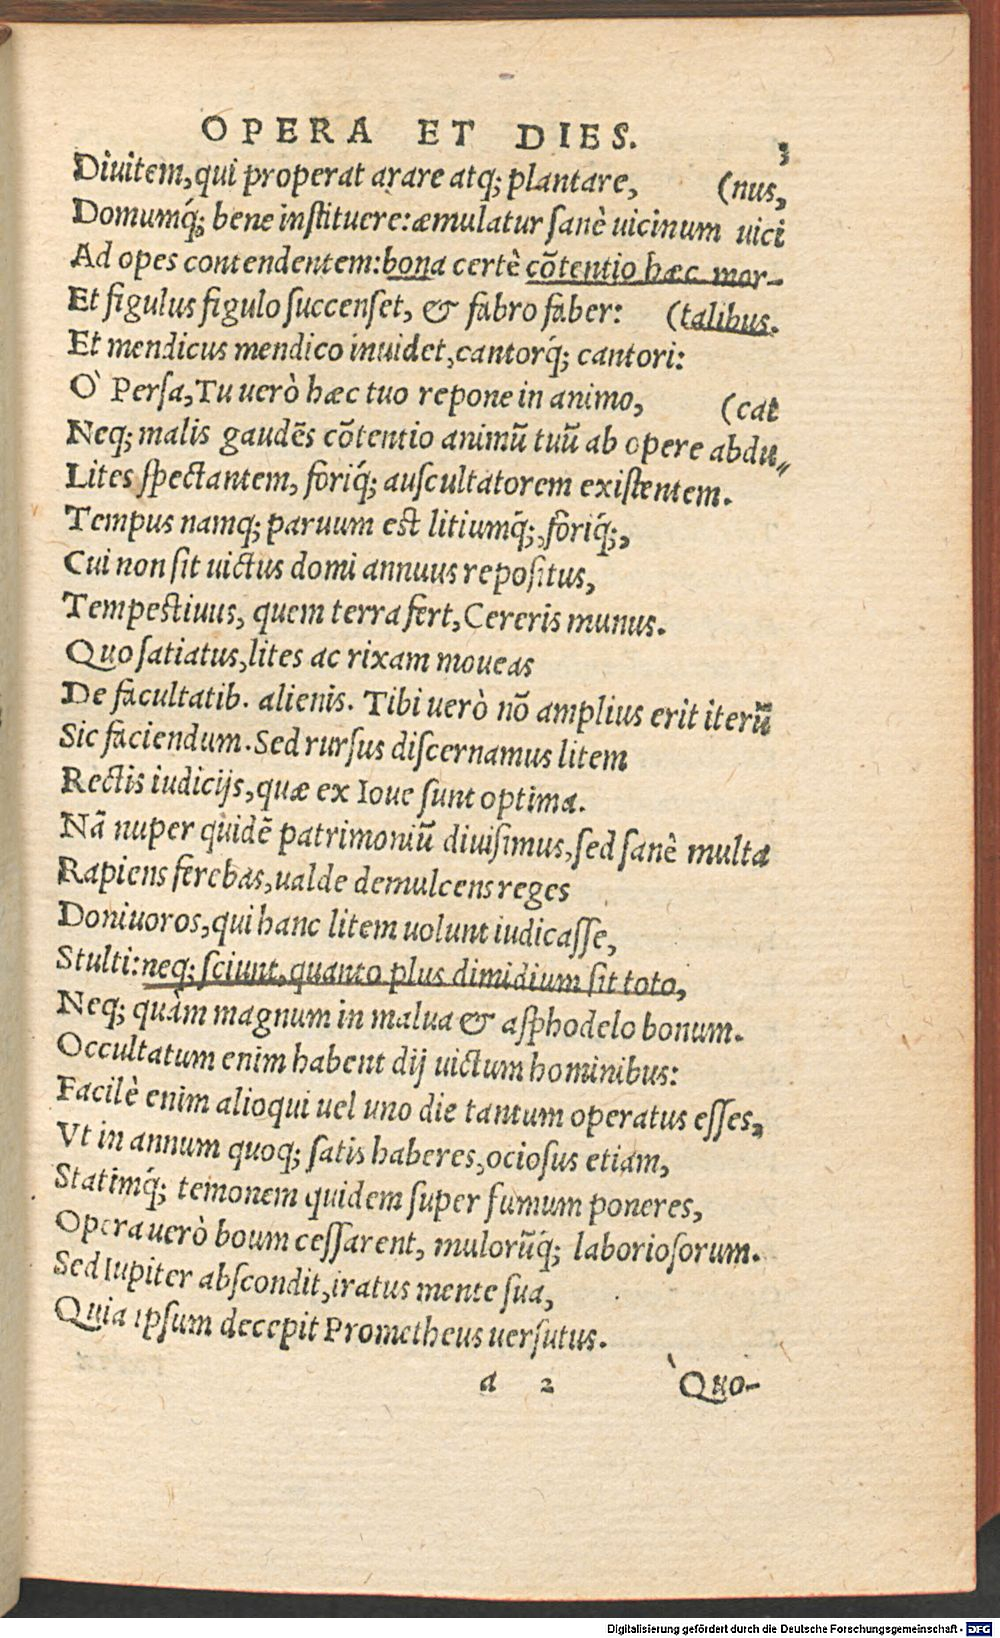 OPERA ET DIES. 3
Diuitem, qui properat arare atq; plantare, (nus,
Domumq́; bene instituere: æmulatur sanè uicinum uici
Ad opes contendentem: bona certè cõtentio hæc mor-
Et figulus figulo succenset, & fabro faber: (talibus.
Et mendicus mendico inuidet, cantorq́; cantori:
O` Persa, Tu uerò hæc tuo repone in animo, (cat
Neq; malis gaudẽs cõtentio animũ tuũ ab opere abdu⸗
Lites spectantem, foriq́; auscultatorem existentem.
Tempus namq; paruum est litiumq́;, foriq́;,
Cui non sit uictus domi annuus repositus,
Tempestiuus, quem terra fert, Cereris munus.
Quo satiatus, lites ac rixam moueas
De facultatib. alienis. Tibi uerò nõ amplius erit iterũ
Sic faciendum. Sed rursus discernamus litem
Rectis iudicijs, quæ ex Ioue sunt optima.
Nã nuper quidẽ patrimoniũ diuisimus, sed sanè multa
Rapiens ferebas, ualde demulcens reges
Doniuoros, qui hanc litem uolunt iudicasse,
Stulti: neq; sciunt, quanto plus dimidium sit toto,
Neq; quàm magnum in malua & asphodelo bonum.
Occultatum enim habent dij uictum hominibus:
Facilè enim alioqui uel uno die tantum operatus esses,
Vt in annum quoq; satis haberes, ociosus etiam,
Statimq́; temonem quidem super fumum poneres,
Opera uerò boum cessarent, mulorũq́; laboriosorum.
Sed Iupiter abscondit, iratus mente sua,
Quia ipsum decepit Prometheus uersutus.
a 2 `Quo-
Digitalisierung gefördert durch die Deutsche Forschungsgemeinschaft - DFG